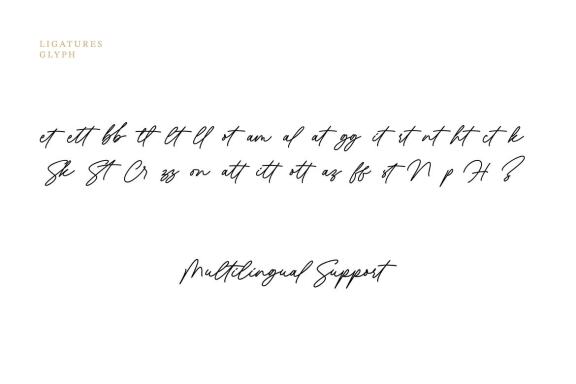 LIGATURES
GLYPH
et ett bb tl lt ll ot am al at gg it rt nt ht ct k
Sk St Cr zz on att itt ott az ff st N p H
Multilingual Support